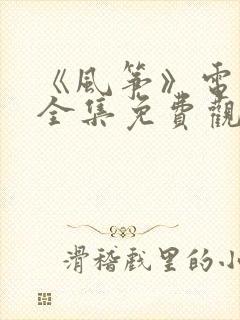 《風箏》電
全集免費觀
滑稽戲里的小